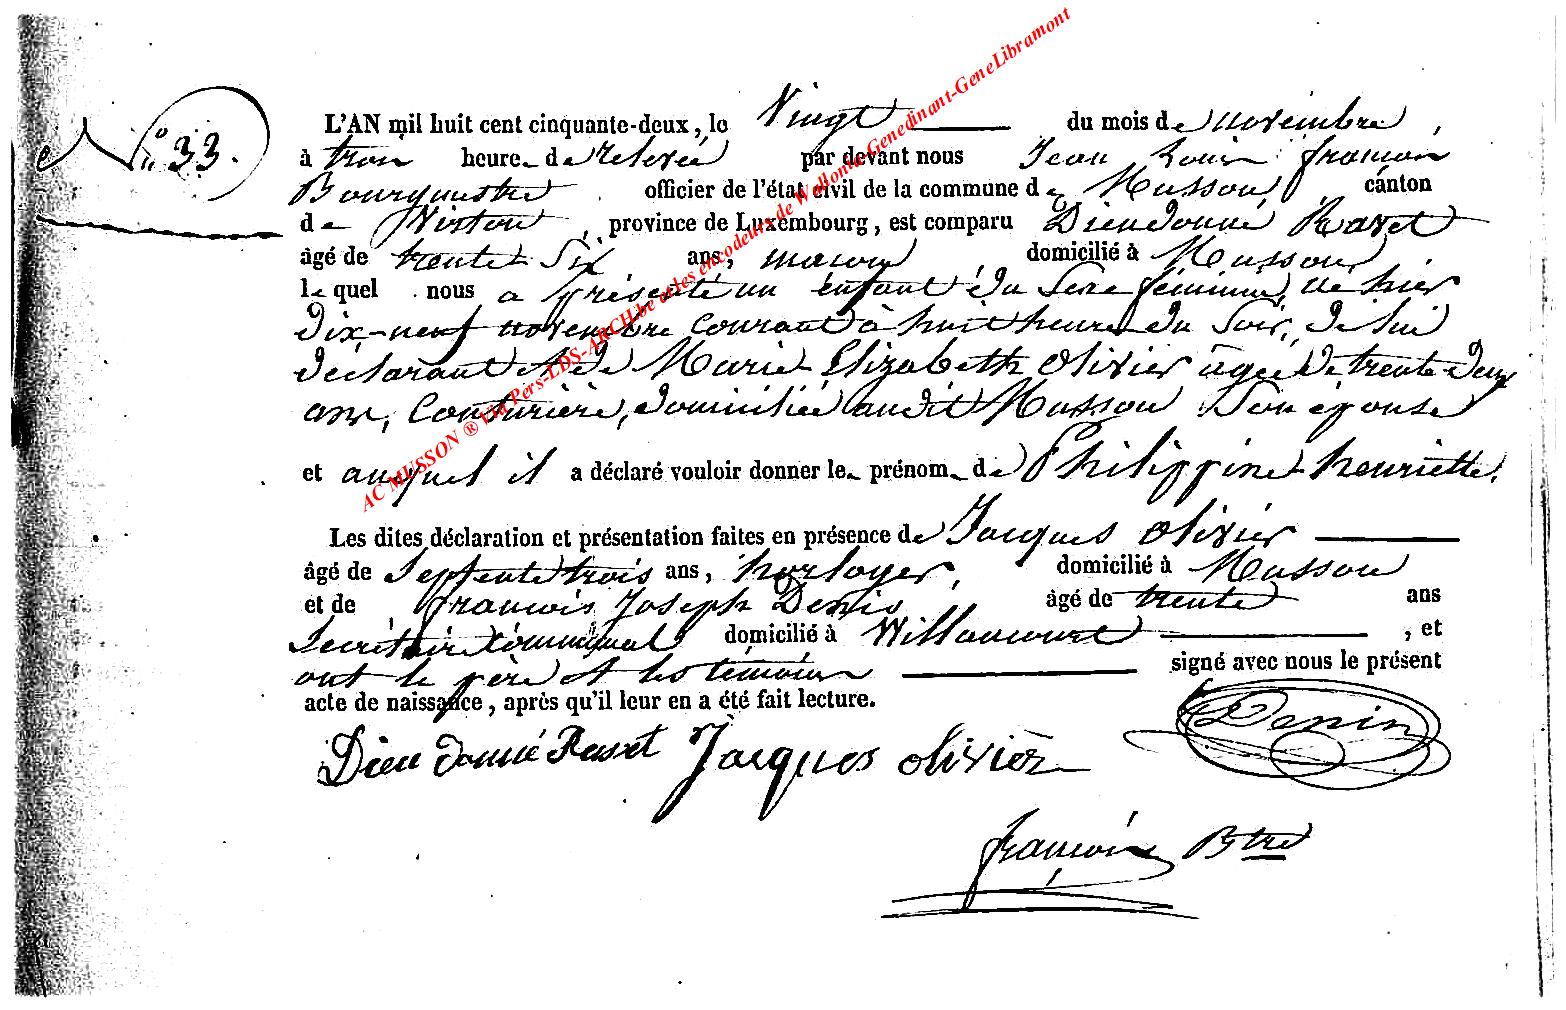 AC MUSSON ® Via Pers-LDS-ARCH.be et les encodeurs de Wallonia-Genedinant-GeneLibramont
N° 33.
L'AN mil huit cent cinquante-deux, le Vingt du mois de novembre,
à trois heures de relevée par devant nous Jean Louis françois
Bourgmestre officier de l'état civil de la commune de Musson, canton
de Virton, province de Luxembourg, est comparu Dieudonné Ravet
âgé de trente Six ans, macon domicilié à Musson,
lequel nous a présenté un enfant du Sexe féminin, né hier
dix-neuf novembre courant à huit heures du Soir, de lui
déclarant et de Marie Elizabeth Olivier âgée de trente deux
ans, Couturière, domiciliée audit Musson Son épouse
et auquel il a déclaré vouloir donner les prénoms de Philippine henriette.
Les dites déclaration et présentation faites en présence de Jacques Olivier
âgé de Septante trois ans, horloger, domicilié à Musson
et de francois Joseph Denis âgé de trente ans
Secrétaire Communal domicilié à Willancourt, et
ont le père et les témoins signé avec nous le présent
acte de naissance, après qu'il leur en a été fait lecture.
Dieudonné Ravet Jacques olivier Denis
françois Btre